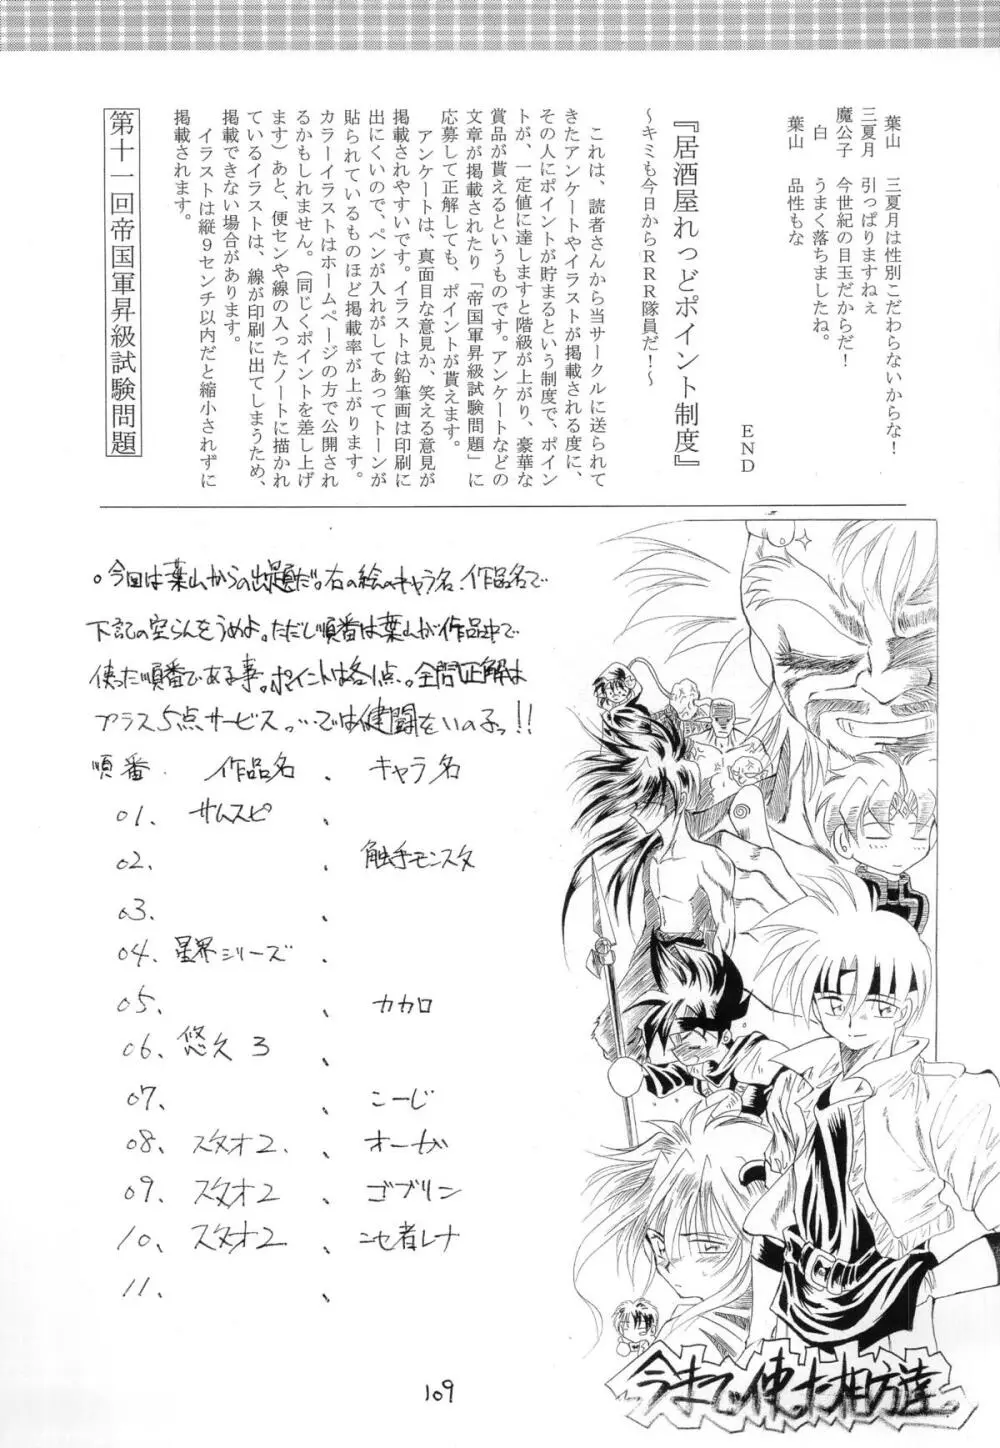 葉山　三夏月は性別こだわらないからな！
三夏月　引っぱりますねぇ
魔公子　今世紀の目玉だからだ！
白　うまく落ちましたね。
葉山　品性もな
END
『居酒屋れっどポイント制度』
～キミも今日からRRR隊員だ！～
これは、読者さんから当サークルに送られて
きたアンケートやイラストが掲載される度に、
その人にポイントが貯まるという制度で、ポイン
トが、一定値に達しますと階級が上がり、豪華な
賞品が貰えるというものです。アンケートなどの
文章が掲載されたり「帝国軍昇級試験問題」に
応募して正解しても、ポイントが貰えます。
アンケートは、真面目な意見か、笑える意見が
掲載されやすいです。イラストは鉛筆画は印刷に
出にくいので、ペンが入れがしてあってトーンが
貼られているものほど掲載率が上がります。
カラーイラストはホームページの方で公開され
るかもしれません。（同じくポイントを差し上げ
ます）あと、便センや線の入ったノートに描かれ
ているイラストは、線が印刷に出てしまうため、
掲載できない場合があります。
イラストは縦９センチ以内だと縮小されずに
掲載されます。
第十一回帝国軍昇級試験問題
。今回は葉山からの出題だ。右の絵のキャラ名、作品名で
下記の空らんをうめよ。ただし順番は葉山が作品中で
使った順番である事。ポイントは各1点。全問正解は
プラス5点サービスっ…では健闘をいのるっ!!
順番　作品名、キャラ名
01.　サムスピ、
02.　、触手モンスタ
03.　、
04.　星界シリーズ、
05.　、カカロ
06.　悠久3、
07.　、こーじ
08.　スタオ2.、オーガ
09.　スタオ2、ゴブリン
10.　スタオ2、ニセ者レナ
11.　、
今まで使った相方達
109